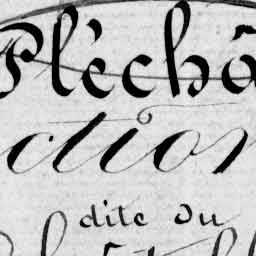 Pléchâ
ction
dite du